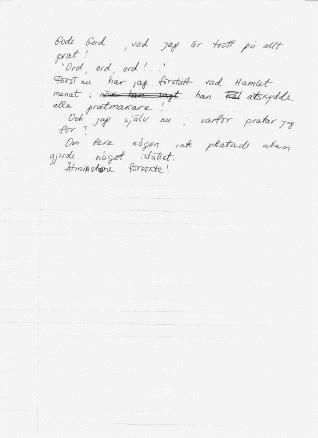 Gode Gud , vad jag är trött på allt
prat !
"Ord, ord, ord ! . "
Först nu har jag förstått vad Hamlet
menat ; när han sagt han avskydde
alla pratmakare !
Och jag själv nu ; varför pratar jag
för ?
Om bara någon inte pratade utan
gjorde något istället.
Åtminstone försökte !